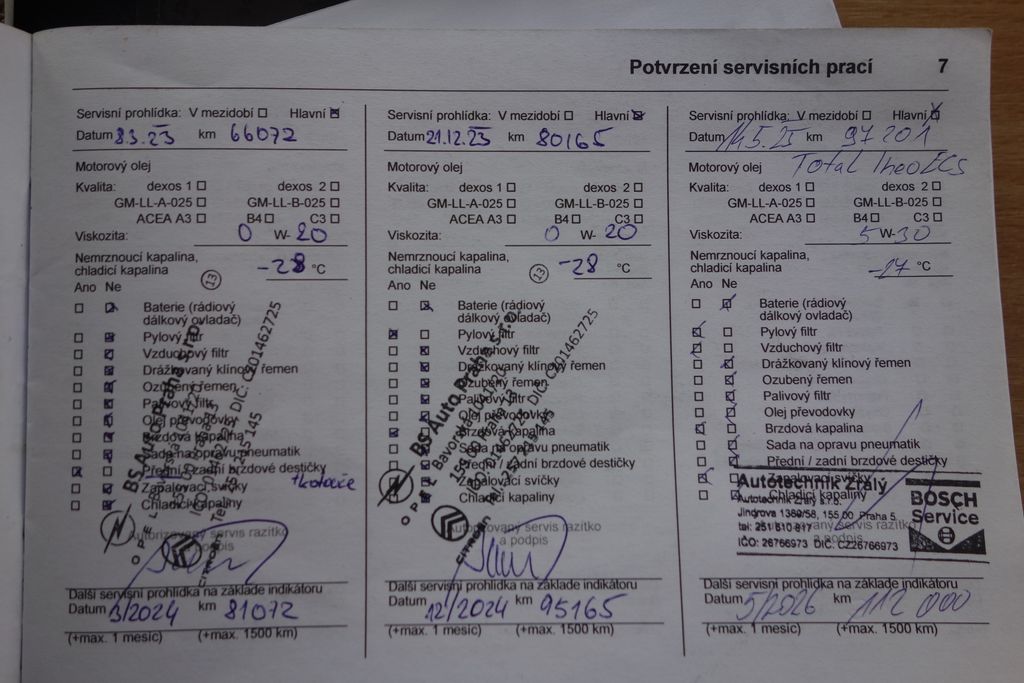 Potvrzení servisních prací 7
Servisní prohlídka: V mezidobí Hlavní
Datum 8.3.23 km 66072
Motorový olej
Kvalita: dexos 1 dexos 2
GM-LL-A-025 GM-LL-B-025
ACEA A3 B4 C3
Viskozita: 0 W- 20
Nemrznoucí kapalina,
chladicí kapalina -28 °C
13
Ano Ne
Baterie (rádiový
dálkový ovladač)
Pylový filtr
Vzduchový filtr
Drážkovaný klínový řemen
Ozubený řemen
Palivový filtr
Olej převodovky
Brzdová kapalina
Sada na opravu pneumatik
Přední / zadní brzdové destičky
+kotouče
Zapalovací svíčky
Chladicí kapaliny
BS Auto Praha s.r.o.
DIČ: CZ01462725
OPEL
CITROËN
Autorizovaný servis razítko
a podpis
Další servisní prohlídka na základe indikátoru
Datum 3/2024 km 81072
(+max. 1 mesíc) (+max. 1500 km)
Servisní prohlídka: V mezidobí Hlavní
Datum 21.12.23 km 80165
Motorový olej
Kvalita: dexos 1 dexos 2
GM-LL-A-025 GM-LL-B-025
ACEA A3 B4 C3
Viskozita: 0 W- 20
Nemrznoucí kapalina,
chladicí kapalina -28 °C
13
Ano Ne
Baterie (rádiový
dálkový ovladač)
Pylový filtr
Vzduchový filtr
Drážkovaný klínový řemen
Ozubený řemen
Palivový filtr
Olej převodovky
Brzdová kapalina
Sada na opravu pneumatik
Přední / zadní brzdové destičky
Zapalovací svíčky
Chladicí kapaliny
BS Auto Praha s.r.o.
DIČ: CZ01462725
OPEL
CITROËN
Autorizovaný servis razítko
a podpis
Další servisní prohlídka na základe indikátoru
Datum 12/2024 km 95165
(+max. 1 mesíc) (+max. 1500 km)
Servisní prohlídka: V mezidobí Hlavní
Datum 14.5.25 km 97201
Motorový olej Total Ineo ECS
Kvalita: dexos 1 dexos 2
GM-LL-A-025 GM-LL-B-025
ACEA A3 B4 C3
Viskozita: 5 W- 30
Nemrznoucí kapalina,
chladicí kapalina -17 °C
Ano Ne
Baterie (rádiový
dálkový ovladač)
Pylový filtr
Vzduchový filtr
Drážkovaný klínový řemen
Ozubený řemen
Palivový filtr
Olej převodovky
Brzdová kapalina
Sada na opravu pneumatik
Přední / zadní brzdové destičky
Zapalovací svíčky
Chladicí kapaliny
Autotechnik Zralý
Autotechnik Zralý s.r.o.
Jindrova 1389/58, 155 00 Praha 5
tel: 251 610 617
IČO: 26766973 DIČ: CZ26766973
BOSCH
Service
servis razítko
a podpis
Další servisní prohlídka na základe indikátoru
Datum 5/2026 km 112 000
(+max. 1 mesíc) (+max. 1500 km)